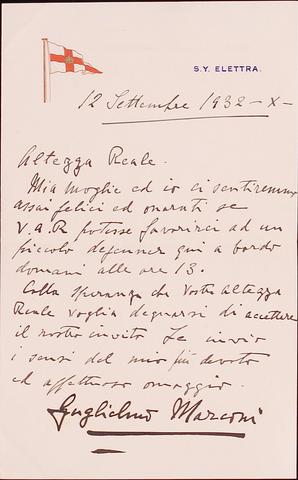 S.Y. ELETTRA.
12 Settembre 1932 - X -
Altezza Reale.
Mia moglie ed io ci sentiremmo
assai felici ed onorati se
V.A.R potesse favorirci ad un
piccolo dejeuner qui a bordo
domani alle ore 13.
Colla speranza che Vostra Altezza
Reale voglia degnarsi di accettare
il nostro invito Le invio
i sensi del mio più devoto
ed affettuoso omaggio.
Guglielmo Marconi